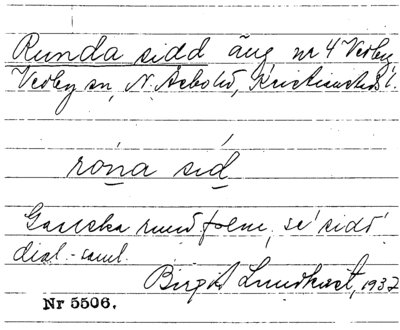 Runda sidd äng nr 4 Vedby
Vedby sn, N. Åsbo hd, Kristianstads l.
róna síd
Ganska rund form, se 'sidd'
dial.-saml.
Birgit Lundkvist, 1932
Nr 5506.